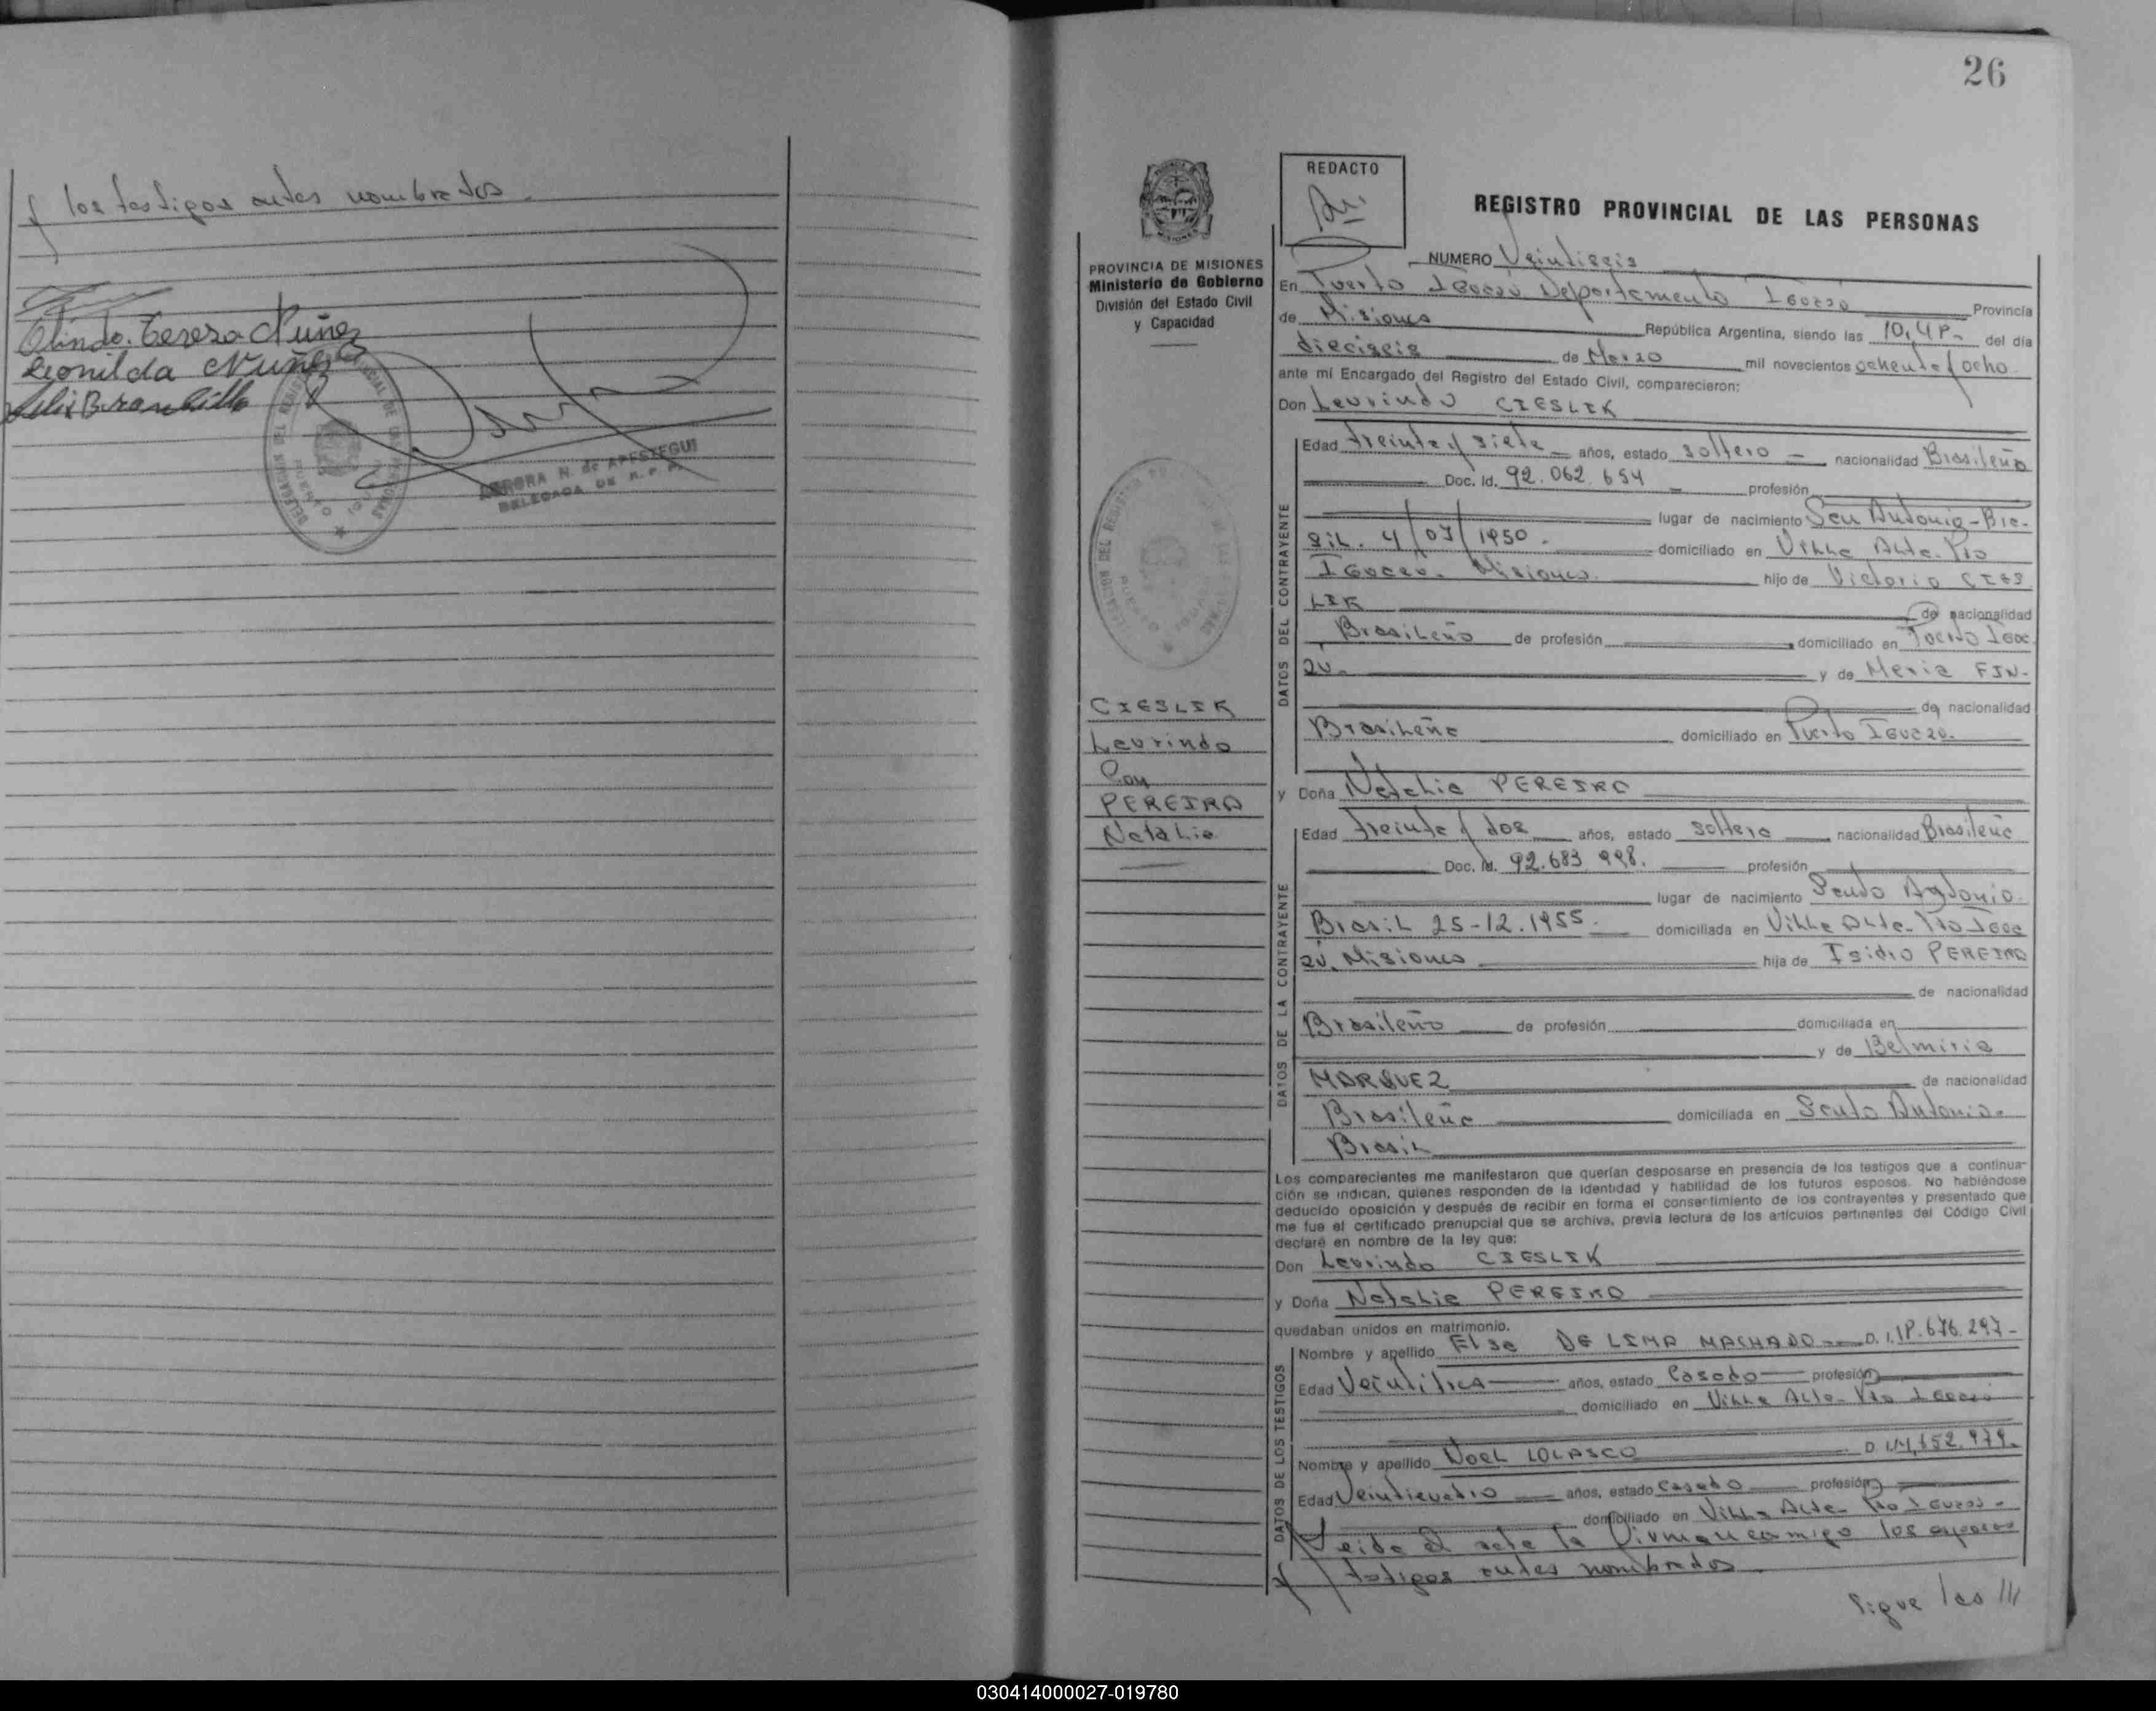 y los testigos antes nombrados.
Olinda Teresa Nuñez
Leonilda Nuñez
AURORA N. de APESTEGUI
DELEGADA DE R. P. P.
26
REDACTO
REGISTRO PROVINCIAL DE LAS PERSONAS
PROVINCIA DE MISIONES
Ministerio de Gobierno
División del Estado Civil
y Capacidad
CIESLIK
Laurindo
Con
PEREIRA
Natalia
NUMERO Veintiseis
En Puerto Iguazú Departamento Iguazú Provincia
de Misiones República Argentina, siendo las 10,48- del día
dieciseis de Marzo mil novecientos ochenta y ocho
ante mí Encargado del Registro del Estado Civil, comparecieron:
Don Laurindo CIESLIK
DATOS DEL CONTRAYENTE
Edad treinta y siete años, estado soltero nacionalidad Brasileño
Doc. Id. 92.062.654 profesión
lugar de nacimiento San Antonio-Bra-
sil. 4/07/1950. domiciliado en Villa Alta-Pto
Iguazú. Misiones. hijo de Victorio CIES
LIK de nacionalidad
Brasileño de profesión domiciliado en Puerto Igua
zú. y de Maria FIN.
de nacionalidad
Brasileña domiciliado en Puerto Iguazú.
y Doña Natalia PEREIRA
DATOS DE LA CONTRAYENTE
Edad treinta y dos años, estado soltera nacionalidad Brasileña
Doc. Id. 92.683.998. profesión
lugar de nacimiento Santo Antonio.
Brasil 25-12.1955. domiciliada en Villa Alta-Pto Igua
zú. Misiones hija de Isidro PEREIRA
de nacionalidad
Brasileño de profesión domiciliada en
y de Belmiria
MARQUEZ de nacionalidad
Brasileña domiciliada en Santo Antonio.
Brasil
Los comparecientes me manifestaron que querían desposarse en presencia de los testigos que a continua-
ción se indican, quienes responden de la identidad y habilidad de los futuros esposos. No habiéndose
deducido oposición y después de recibir en forma el consentimiento de los contrayentes y presentado que
me fue el certificado prenupcial que se archiva, previa lectura de los artículos pertinentes del Código Civil
declaré en nombre de la ley que:
Don Laurindo CIESLIK
y Doña Natalia PEREIRA
quedaban unidos en matrimonio.
DATOS DE LOS TESTIGOS
Nombre y apellido Elsa DE LIMA MACHADO D.I. 18.676.297-
Edad Veintitres años, estado Casado profesión
domiciliado en Villa Alta-Pto Iguazú
Nombre y apellido Noel LOLASCO
Edad Veinticuatro años, estado Casado profesión
domiciliado en Villa Alta- Pto Iguazú-
Leida el acta la firman conmigo los esposos
y testigos antes nombrados.
Sigue las ///
030414000027-019780